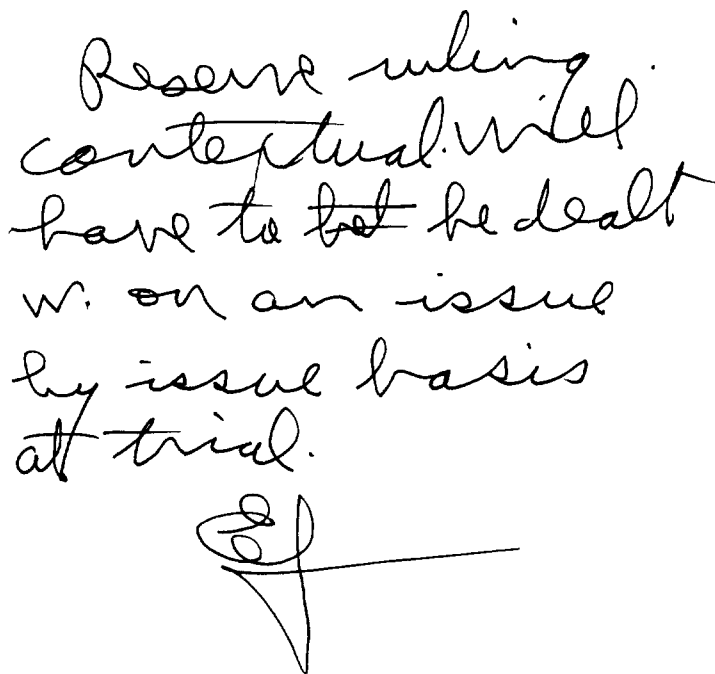 Reserve ruling.
contextual. Will
have to be dealt
w. on an issue
by issue basis
at trial.